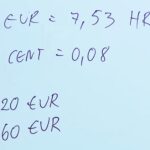 EUR = 7,53 HR
CENT = 0,08
20 EUR
60 EUR